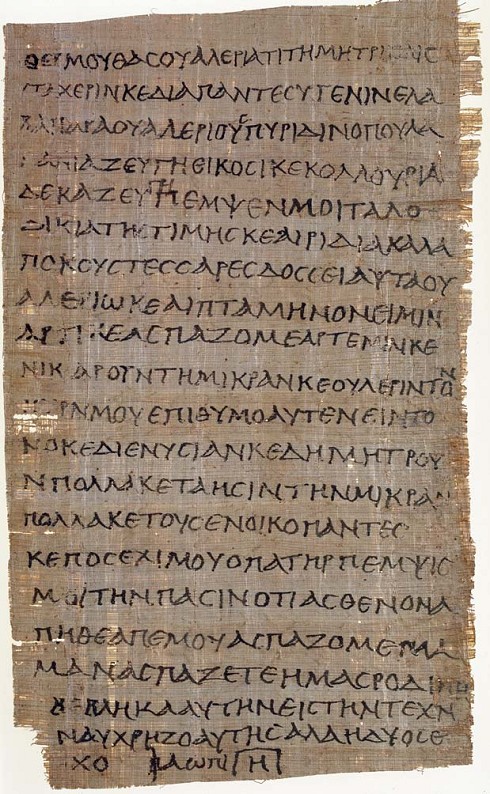 ΘΕΡΜΟΥΘΑϹΟΥΑΛΕΡΙΑΤΙΤΗΜΗΤΡΙΠΛΙϹ
ΤΑΧΕΡΙΝΚΕΔΙΑΠΑΝΤΕϹΥΓΕΝΙΝΕΛΑ
ΒΑΠΑΡΑΟΥΑΛΕΡΙΟΥϹΠΥΡΙΔΙΝΟΠΟΥΛΑ
ΖΕΥΓΗΕΙΚΟϹΙΚΕΚΟΛΛΟΥΡΙΑ
ΔΕΚΑΖΕΥΓΗΠΕΜΨΕΝΜΟΙΤΑΛΟ
ΔΙΚΙΑΤΗϹΤΙΜΗϹΚΕΑΙΡΙΔΙΑΚΑΛΑ
ΠΟΚΟΥϹΤΕϹϹΑΡΕϹΔΟϹϹΕΙΑΥΤΑΟΥ
ΑΛΕΡΙΩΚΕΑΙΠΤΑΜΗΝΟΝΕΙΜΙΝ
ΑΡΤΙΚΕΑϹΠΑΖΟΜΕΑΡΤΕΜΙΝΚΕ
ΝΙΚΑΡΟΥΝΤΗΜΙΚΡΑΝΚΕΟΥΛΕΡΙΝΤΟΝ
ΚΥΡΝΜΟΥΕΠΙΘΥΜΟΑΥΤΕΝΕΙΝΤΟ
ΝΟΚΕΔΙΕΝΥϹΙΑΝΚΕΔΗΜΗΤΡΟΥ
ΝΠΟΛΛΑΚΕΤΑΗϹΙΝΤΗΝΜΙΚΡΑΝ
ΠΟΛΛΑΚΕΤΟΥϹΕΝΟΙΚΟΠΑΝΤΕϹ
ΚΕΠΟϹΕΧΙΜΟΥΟΠΑΤΗΡΠΕΜΨΙϹ
ΜΟΙΤΗΝΠΑϹΙΝΟΤΙΑϹΘΕΝΟΝΑ
ΠΗΘΕΑΠΕΜΟΥΑϹΠΑΖΟΜΕΜΑΜ
ΜΑΝΑϹΠΑΖΕΤΕΗΜΑϹΡΟΔΙΝΗ
ΒΕΒΛΗΚΑΑΥΤΗΝΕΙϹΤΗΝΤΕΧΝ
ΝΑΥΧΡΗΖΟΑΥΤΗϹΑΛΑΗΔΥΟϹΕ
ΧΟ ΦΑΩΠΙ Η